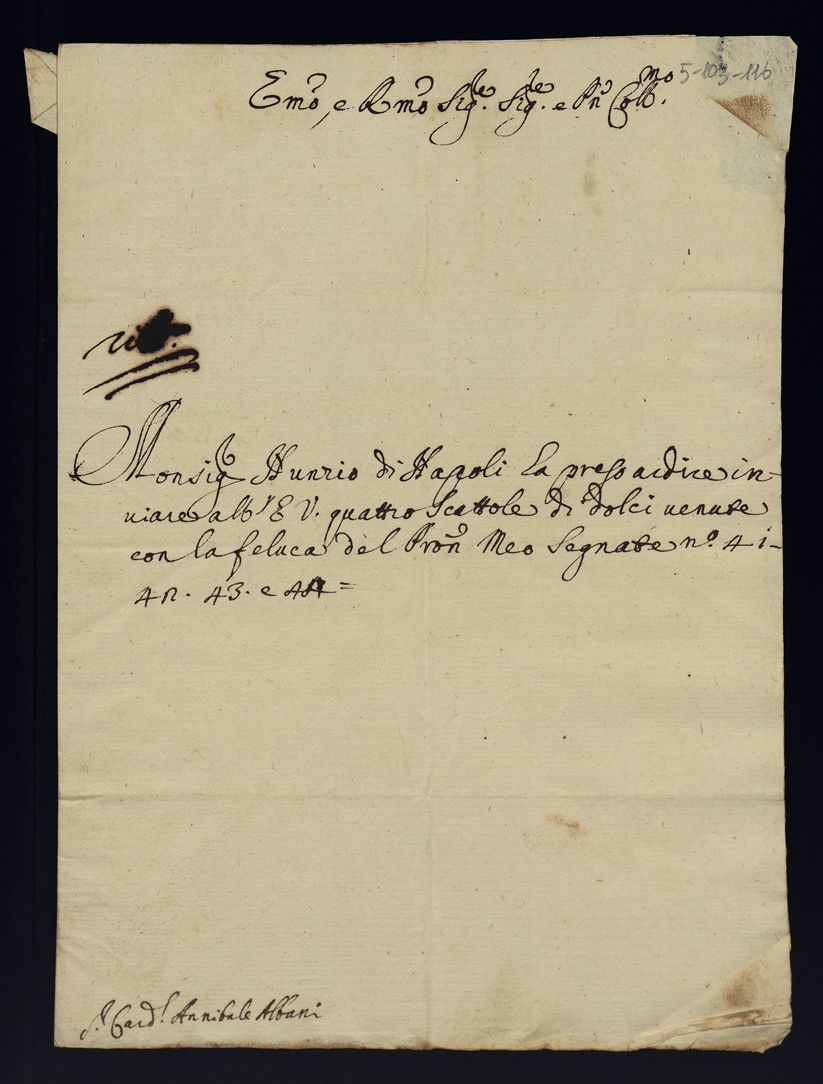 5-103-116
Emo, e Rmo Sig.re Sig.re e Pn Coll.mo
Monsig Nunzio di Napoli fa preso ardire in-
viare all' E V. quattro Scattole di dolci venute
con la feluca del Pron Meo Segnate n.o 41-
42. 43. e 44=
S.r Card.l Annibale Albani